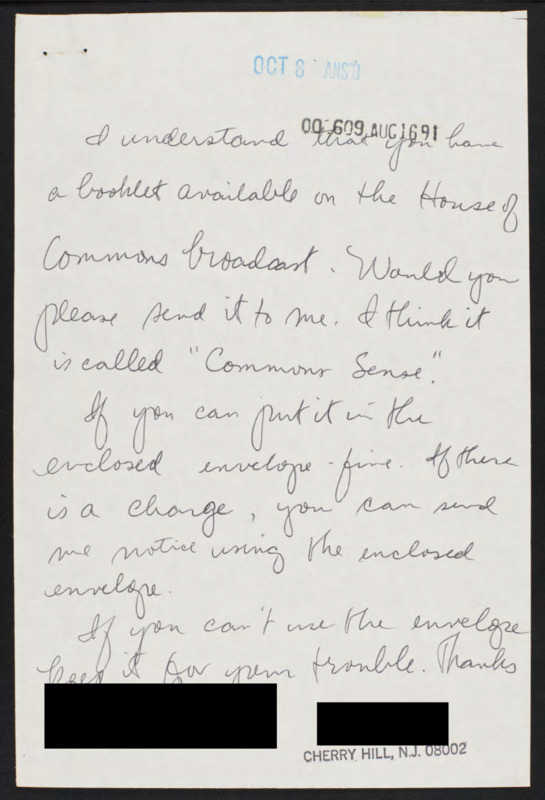 OCT 8 ANS'D
00-609 AUG 16 91
I understand that you have
a booklet available on the House of
Commons broadcast. Would you
please send it to me. I think it
is called "Commons Sense".
If you can put it in the
enclosed envelope - fine. If there
is a charge, you can send
me notice using the enclosed
envelope.
If you can't use the envelope
keep it for your trouble. Thanks
CHERRY HILL, N.J. 08002